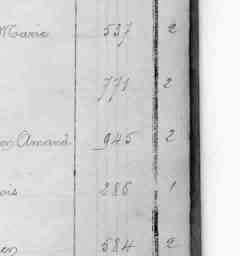 Marie 537 2
771 2
Amand 945 2
ois 286 1
584 2